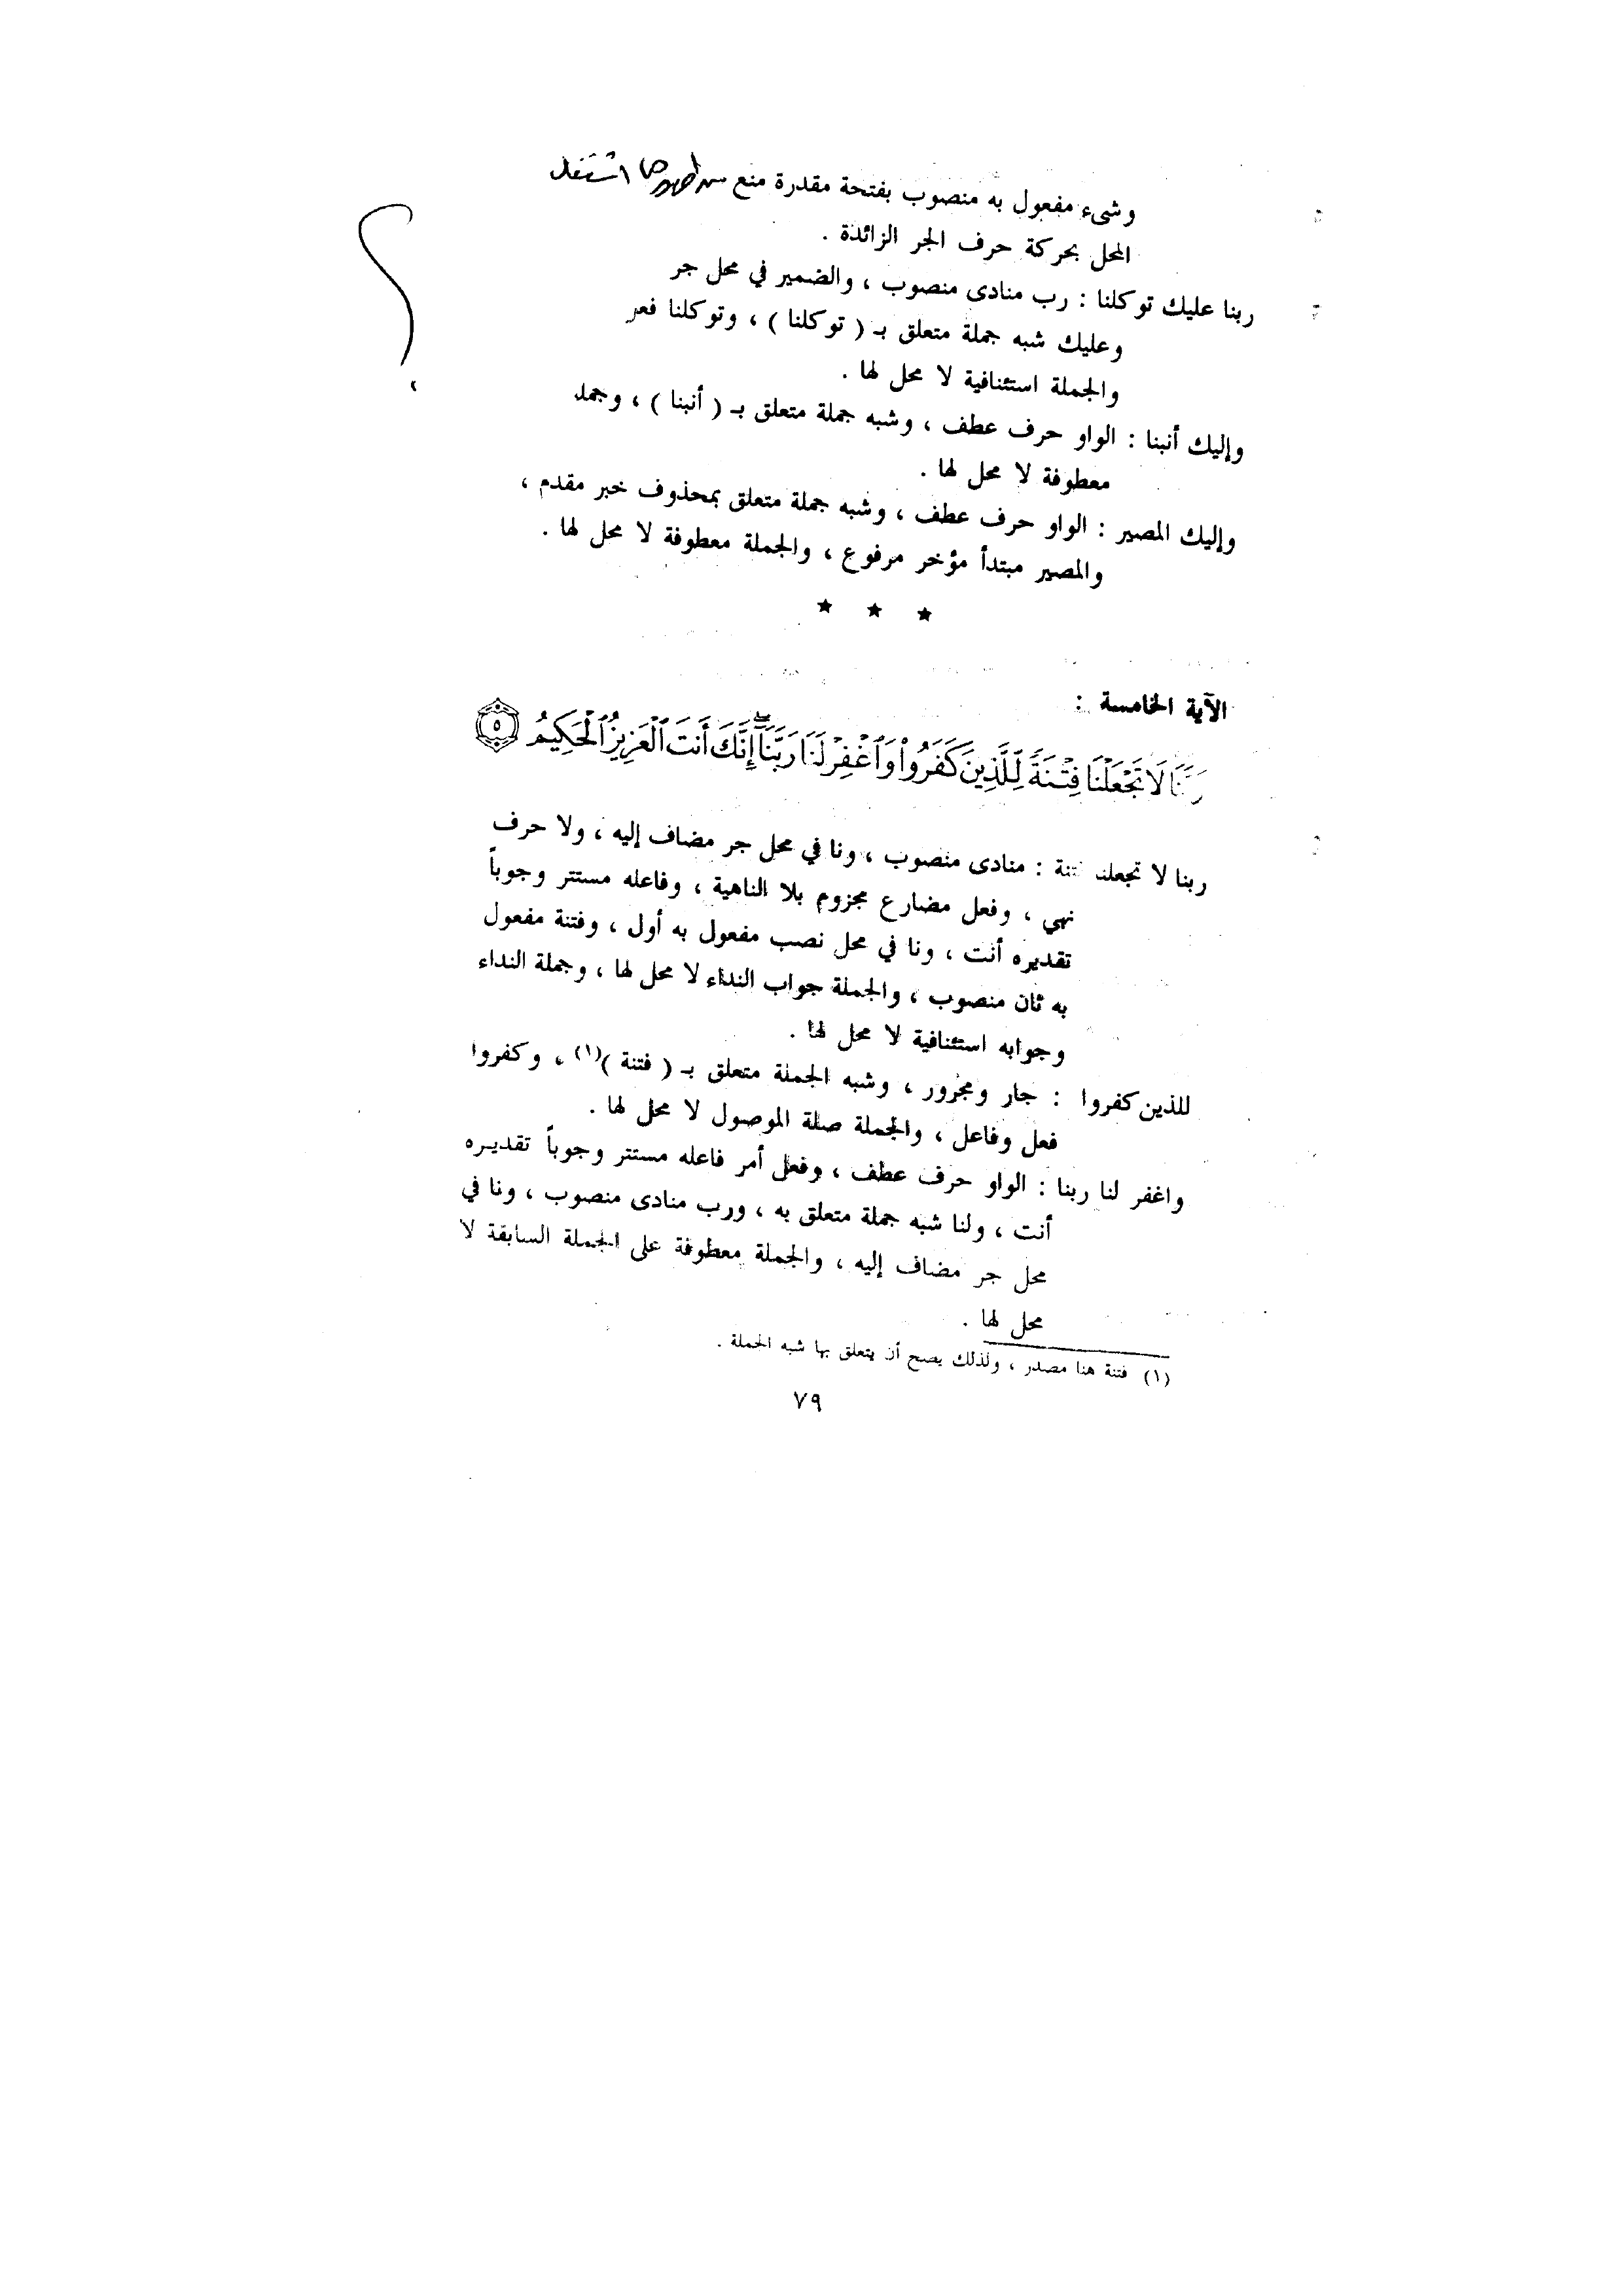 وشىء مفعول به منصوب بفتحة مقدرة منع من ظهورها اشتغال
المحل بحركة حرف الجر الزائدة .
ربنا عليك توكلنا : رب منادى منصوب ، والضمير في محل جر
وعليك شبه جملة متعلق بـ ( توكلنا ) ، وتوكلنا
والجملة استئنافية لا محل لها .
وإليك أنبنا : الواو حرف عطف ، وشبه جملة متعلق بـ ( أنبنا ) ،
معطوفة لا محل لها .
وإليك المصير : الواو حرف عطف ، وشبه جملة متعلق بمحذوف خبر مقدم ،
والمصير مبتدأ مؤخر مرفوع ، والجملة معطوفة لا محل لها .
★ ★ ★
الآية الخامسة :
رَبَّنَا لَا تَجْعَلْنَا فِتْنَةً لِّلَّذِينَ كَفَرُواْ وَٱغْفِرْ لَنَا رَبَّنَآ ۖ إِنَّكَ أَنتَ ٱلْعَزِيزُ ٱلْحَكِيمُ ٥
ربنا لا تجعلنا فتنة : منادى منصوب ، ونا في محل جر مضاف إليه ، ولا حرف
نهي ، وفعل مضارع مجزوم بلا الناهية ، وفاعله مستتر وجوباً
تقديره أنت ، ونا في محل نصب مفعول به أول ، وفتنة مفعول
به ثان منصوب ، والجملة جواب النداء لا محل لها ، وجملة النداء
وجوابه استئنافية لا محل لها .
للذين كفروا : جار ومجرور ، وشبه الجملة متعلق بـ ( فتنة )(١) ، وكفروا
فعل وفاعل ، والجملة صلة الموصول لا محل لها .
واغفر لنا ربنا : الواو حرف عطف ، وفعل أمر فاعله مستتر وجوباً تقديره
أنت ، ولنا شبه جملة متعلق به ، ورب منادى منصوب ، ونا في
محل جر مضاف إليه ، والجملة معطوفة على الجملة السابقة لا
محل لها .
(١) فتنة هنا مصدر ، ولذلك يصح أن يتعلق بها شبه الجملة .
٧٩